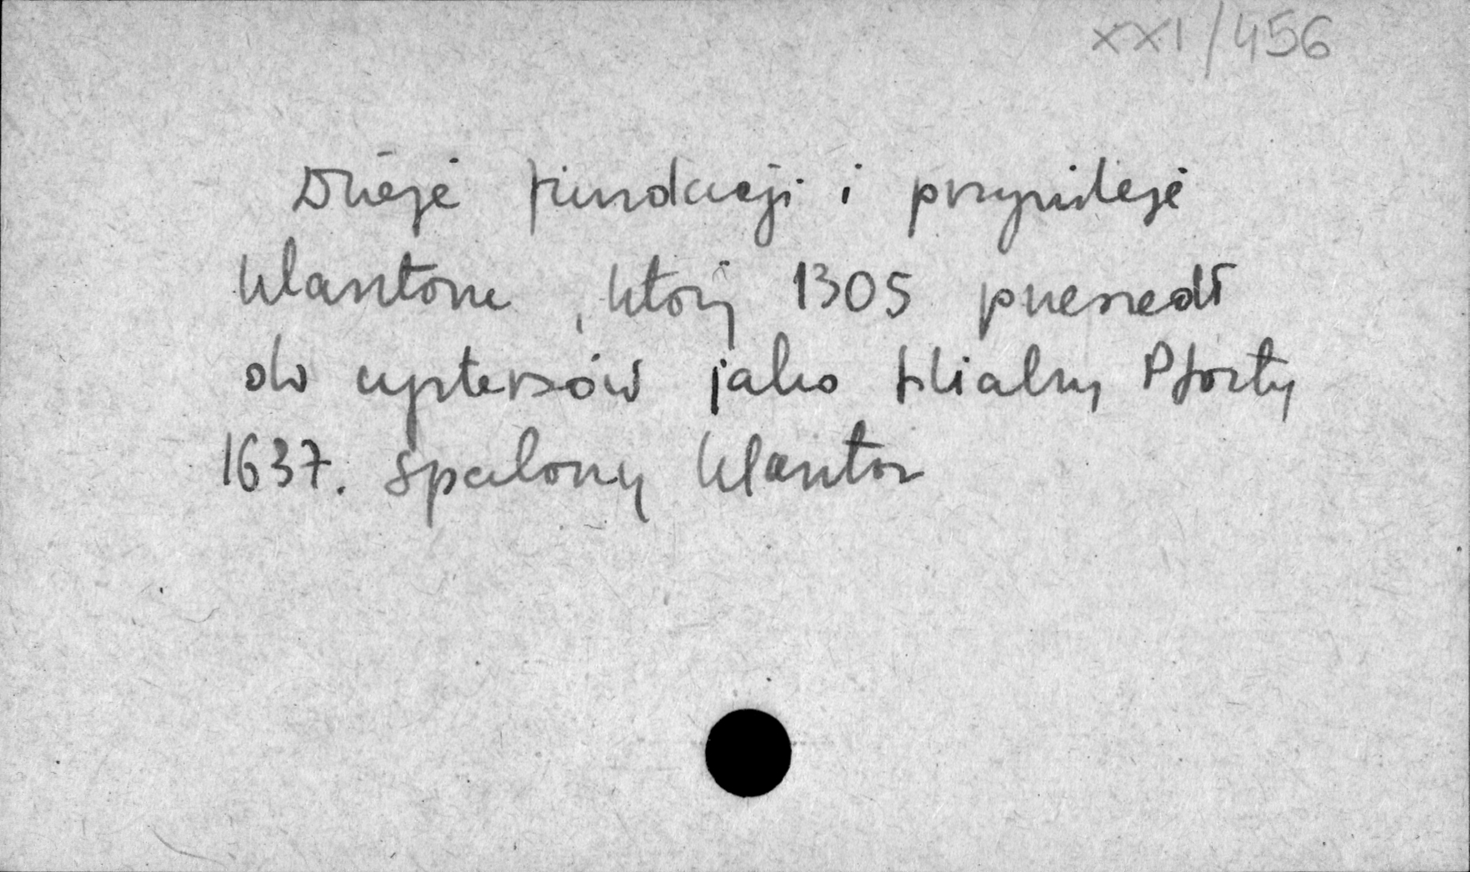 XXI/456
Dzieje fundacji i przywileje
klasztoru, który 1305 przeszedł
do cystersów jako filialny Pforty
1637. spalony klasztor